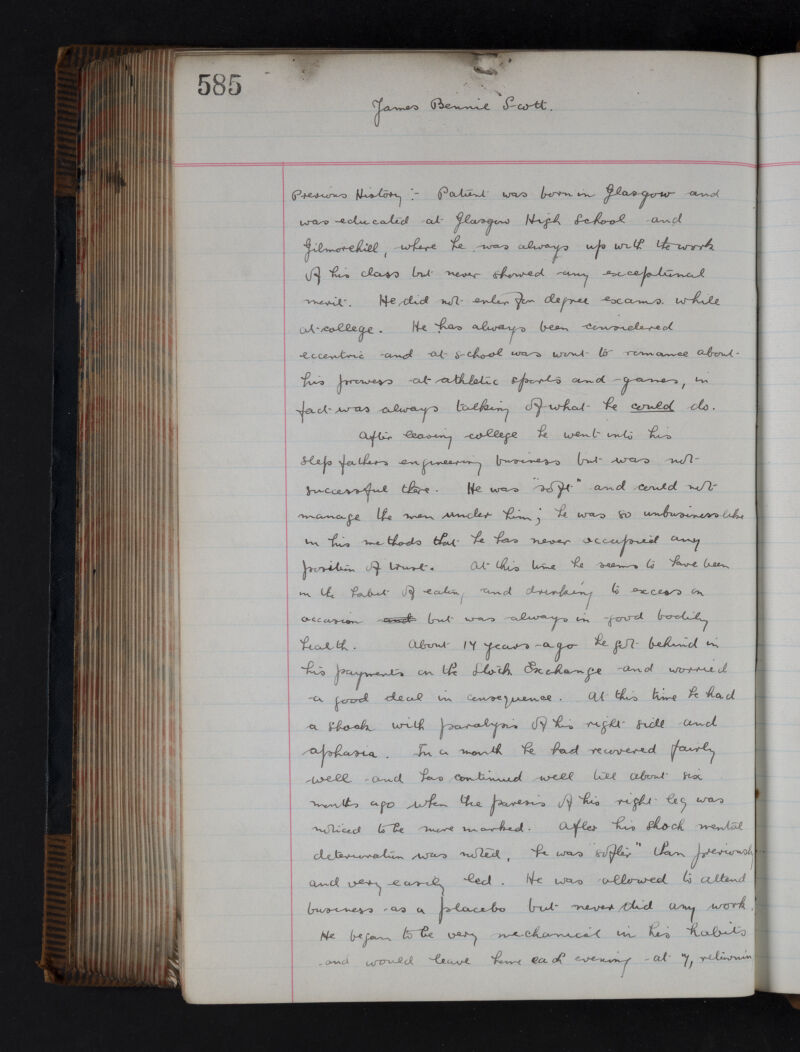 585
James Bennie Scott.
Previous History :- Patient was born in Glasgow and
was educated at Glasgow High School and
Gilmorehill, where he was always up with the work
of his class but never showed any exceptional
merit. He did not enter for degree exams. while
at college. He has always been considered
eccentric and at school was wont to romance about
his prowess at athletic sports and games, in
fact was always talking of what he could do.
After leaving college he went into his
step fathers engineering business but was not
successful there. He was "soft" and could not
manage the men under him; he was so unbusinesslike
in his methods that he has never occupied any
position of trust. At this time he seems to have been
in the habit of eating and drinking to excess on
occasion and but was always in good bodily
health. About 14 years ago he got behind in
his payments on the Stock Exchange and worried
a good deal in consequence. At this time he had
a shock with paralysis of his right side and
aphasia. In a month he had recovered fairly
well and has continued well till about six
months ago when the paresis of his right leg was
noticed to be more marked. After his shock mental
deterioration was noted, he was "softer" than previously
and very easily led. He was allowed to attend
business as a placebo but never did any work.
He began to be very mechanical in his habits
and would leave home each evening at 7, returnin